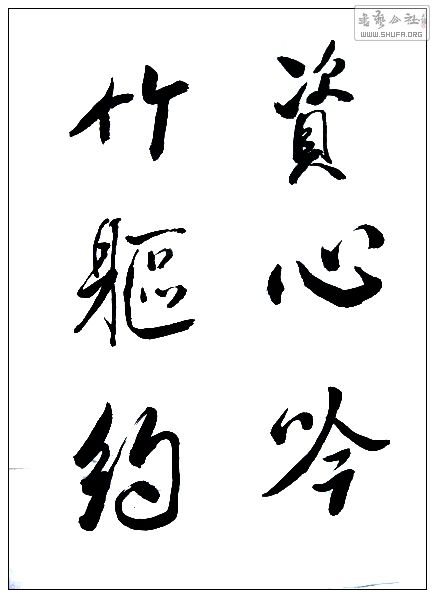 書藝公社
WWW.SHUFA.ORG
資心吟
竹軀約